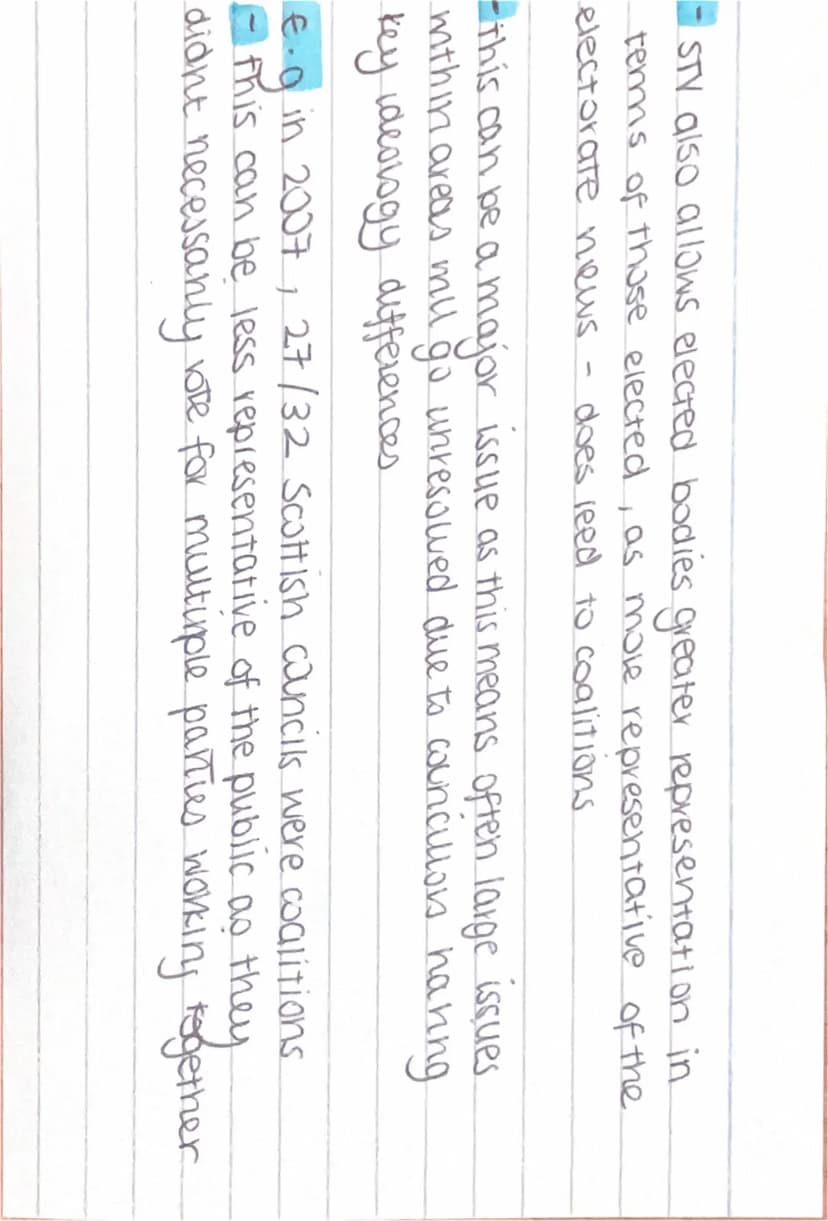 - STV also allows elected bodies greater representation in
terms of those elected, as more representative of the
electorate news - does leed to coalitions
- this can be a major issue as this means often large issues
within areas will go unresolved due to councillors having
key ideology differences
E.g in 2007, 27/32 Scottish councils were coalitions
- this can be less representative of the public as they
didnt necessarily vote for multiple parties working together